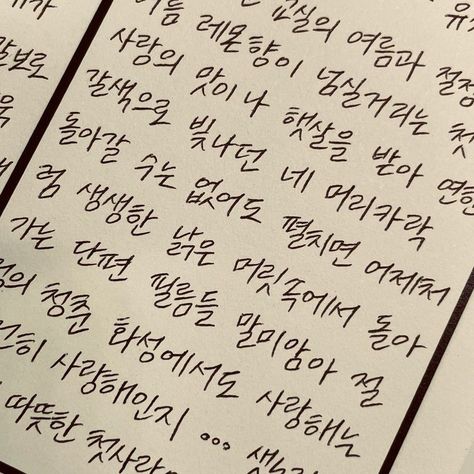 교실의 여름과 절정
레몬향이 넘실거리는 첫
사랑의 맛이나 햇살을 받아 연한
갈색으로 빛나던 네 머리카락
돌아갈 수는 없어도 펼치면 어제처
럼 생생한 낡은 머릿속에서 돌아
가는 단편 필름들 말미암아 절
정의 청춘 화성에서도 사랑해는
히 사랑해인지 ...
따뜻한 첫사랑